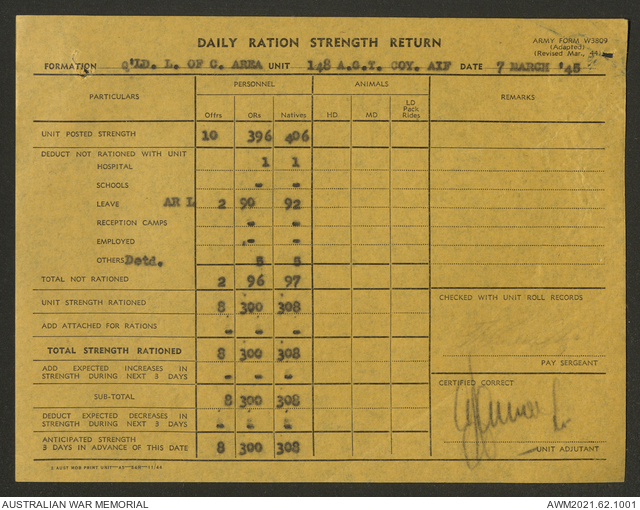 DAILY RATION STRENGTH RETURN
ARMY FORM W3809
(Adapted)
(Revised Mar., 44)
FORMATION Q'LD. L. OF C. AREA UNIT 148 A.G.T. COY. AIF DATE 7 MARCH '45
PARTICULARS PERSONNEL ANIMALS REMARKS
Offrs ORs Natives HD. MD LD Pack Rides
UNIT POSTED STRENGTH 10 396 406
DEDUCT NOT RATIONED WITH UNIT
HOSPITAL 1 1
SCHOOLS - -
LEAVE AR L 2 90 92
RECEPTION CAMPS - -
EMPLOYED - -
OTHERS Detd. 5 5
TOTAL NOT RATIONED 2 96 97
UNIT STRENGTH RATIONED 8 300 308
CHECKED WITH UNIT ROLL RECORDS
ADD ATTACHED FOR RATIONS - - -
TOTAL STRENGTH RATIONED 8 300 308
PAY SERGEANT
ADD EXPECTED INCREASES IN
STRENGTH DURING NEXT 3 DAYS - - -
CERTIFIED CORRECT
SUB-TOTAL 8 300 308
DEDUCT EXPECTED DECREASES IN
STRENGTH DURING NEXT 3 DAYS - - -
ANTICIPATED STRENGTH
3 DAYS IN ADVANCE OF THIS DATE 8 300 308
UNIT ADJUTANT
AUSTRALIAN WAR MEMORIAL AWM2021.62.1001